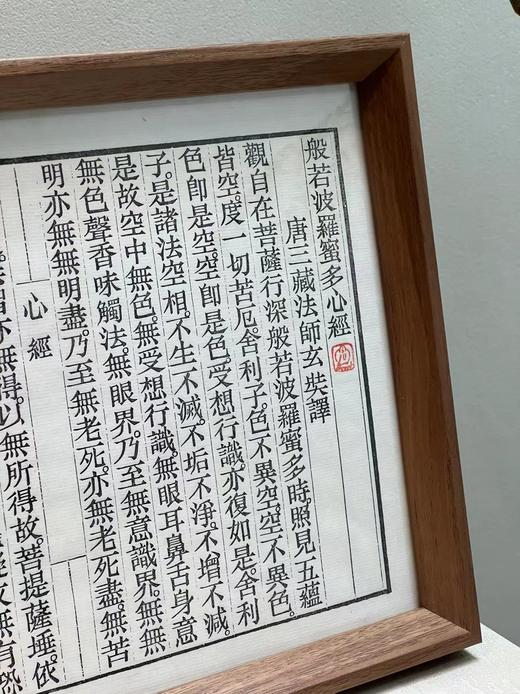 般若波羅蜜多心經
唐三藏法師玄奘譯
觀自在菩薩行深般若波羅蜜多時。照見五蘊
皆空。度一切苦厄。舍利子。色不異空。空不異色。
色卽是空。空卽是色。受想行識。亦復如是。舍利
子。是諸法空相。不生不滅。不垢不淨。不增不減。
是故空中無色。無受想行識。無眼耳鼻舌身意
無色聲香味觸法。無眼界。乃至無意識界。無無
明亦無無明盡。乃至無老死。亦無老死盡。無苦
心經
亦無得。以無所得故。菩提薩埵。依
無有恐